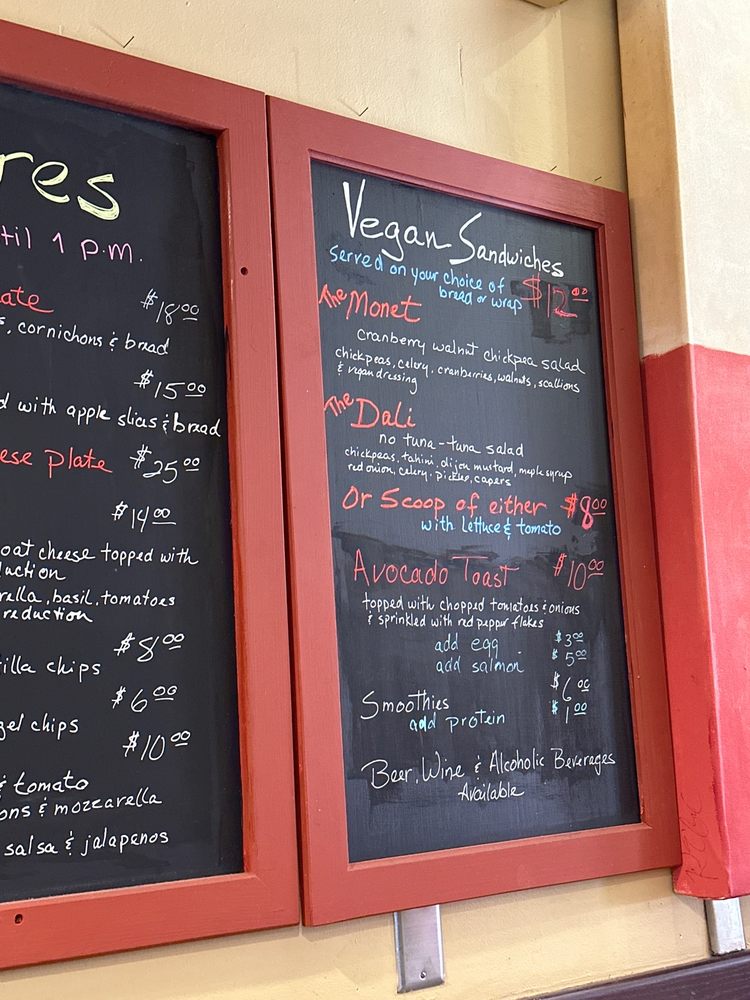 res
til 1 P.M.
ate $18.00
s, cornichons & bread
$15.00
d with apple slices & bread
ese plate $25.00
$14.00
oat cheese topped with
uction
rella, basil, tomatoes
reduction
$8.00
illa chips
$6.00
gel chips
$10.00
& tomato
ons & mozzarella
salsa & jalapenos
Vegan Sandwiches
served on your choice of
bread or wrap $12.00
The Monet
cranberry walnut chickpea salad
chickpeas, celery, cranberries, walnuts, scallions
& vegan dressing
The Dali
no tuna-tuna salad
chickpeas, tahini, dijon mustard, maple syrup
red onion, celery, pickles, capers
Or Scoop of either $8.00
with lettuce & tomato
Avocado Toast $10.00
topped with chopped tomatoes & onions
& sprinkled with red pepper flakes
add egg $3.00
add salmon $5.00
Smoothies $6.00
add protein $1.00
Beer, Wine & Alcoholic Beverages
Available